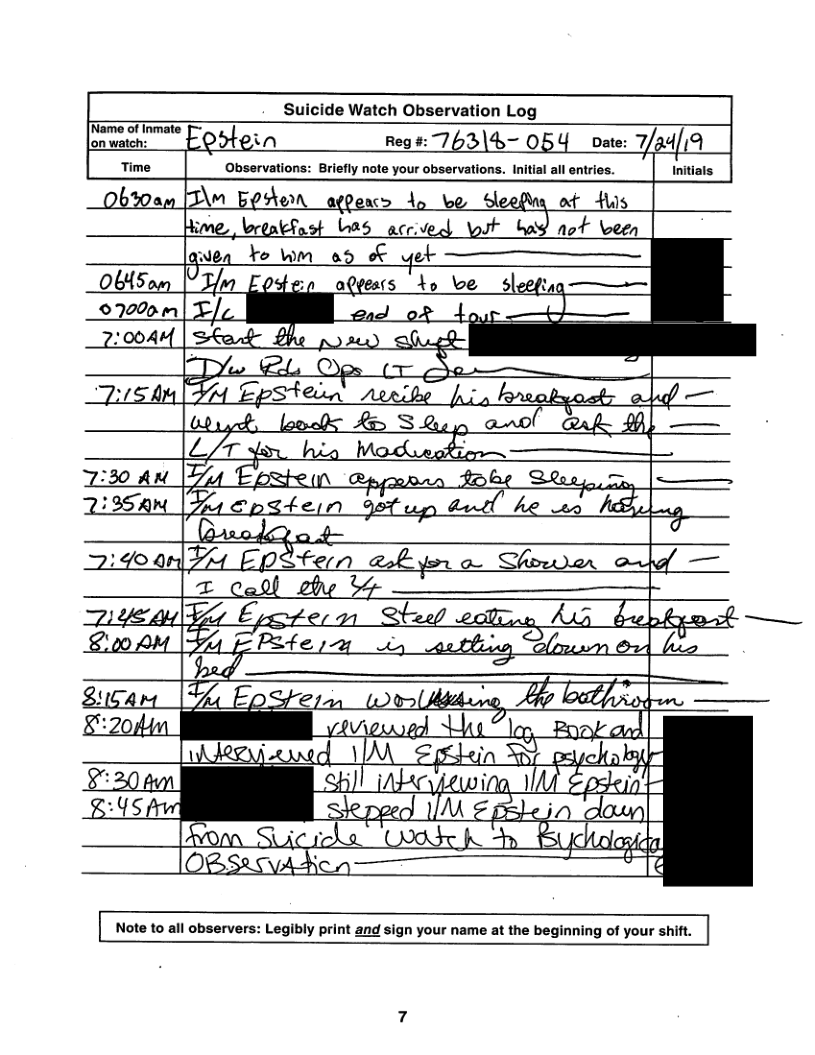 Suicide Watch Observation Log
Name of Inmate on watch: Epstein Reg #: 76318-054 Date: 7/24/19
Time Observations: Briefly note your observations. Initial all entries. Initials
0630am I\m Epstein appears to be sleeping at this
time, breakfast has arrived but has not been
given to him as of yet
0645am I/m Epstein appears to be sleeping
0700am I/c end of tour
7:00AM start the new shift
D/w Ops LT
7:15AM I/M EpStein recibe his breakfast and
went back to Sleep and ask the
L/T for his Madication
7:30 AM I/M EpStein appears to be Sleeping
7:35AM I/M EpStein got up and he is having
breakfast
7:40 am I/M EPStein ask for a Shower and
I call the L/t
7:45AM I/M Epstein Steel eating his breakfast
8:00AM I/M EPStein is setting down on his
bed
8:15AM I/M EpStein was using the bathroom
8:20Am reviewed the log BOOK and
interviewed I/M Epstein for psychology
8:30Am still interviewing I/M Epstein
8:45Am stepped I/M Epstein down
from Suicide Watch to Psychological
OBservAtion
Note to all observers: Legibly print and sign your name at the beginning of your shift.
7